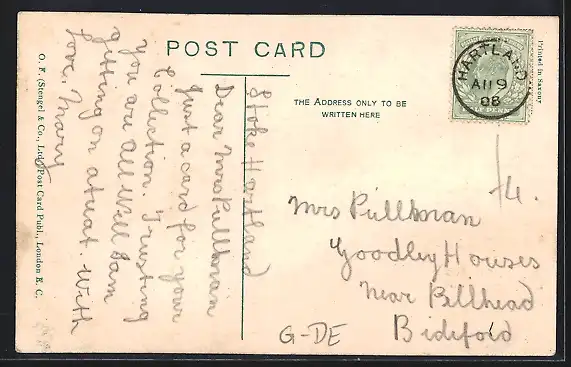 POST CARD
THE ADDRESS ONLY TO BE
WRITTEN HERE
HARTLAND
AU 9
08
Printed in Saxony
O. F. (Stengel & Co., Ltd.) Post Card Publ., London E. C.
Stoke Hartland
Dear Mrs Pullman
Just a card for your
Collection. Trusting
you are all Well I am
gitting on atuat. With
love. Mary
Mrs Pullman
Goodley Houses
Near Billhead
Bideford
G-DE